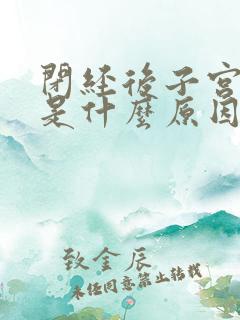 閉經後子宮
是什麼原因
致金辰
未經同意禁止轉載